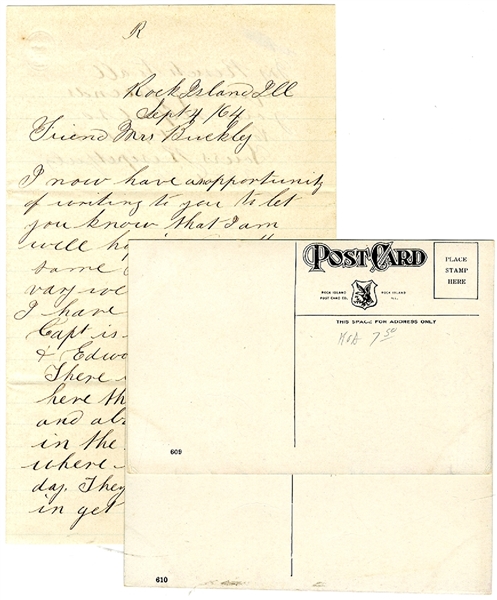 R
Rock Island Ill
Sept 4 /64
Friend Mrs Buckley
I now have an opportunity
of writing to you to let
you know that I am
well
same
vary we
I have
Capt is
& Edwo
There
here th
and ab
in the
where
day. They
in get
POST CARD
PLACE
STAMP
HERE
ROCK ISLAND
POST CARD CO.
ROCK ISLAND
ILL.
THIS SPACE FOR ADDRESS ONLY
7 50
609
610